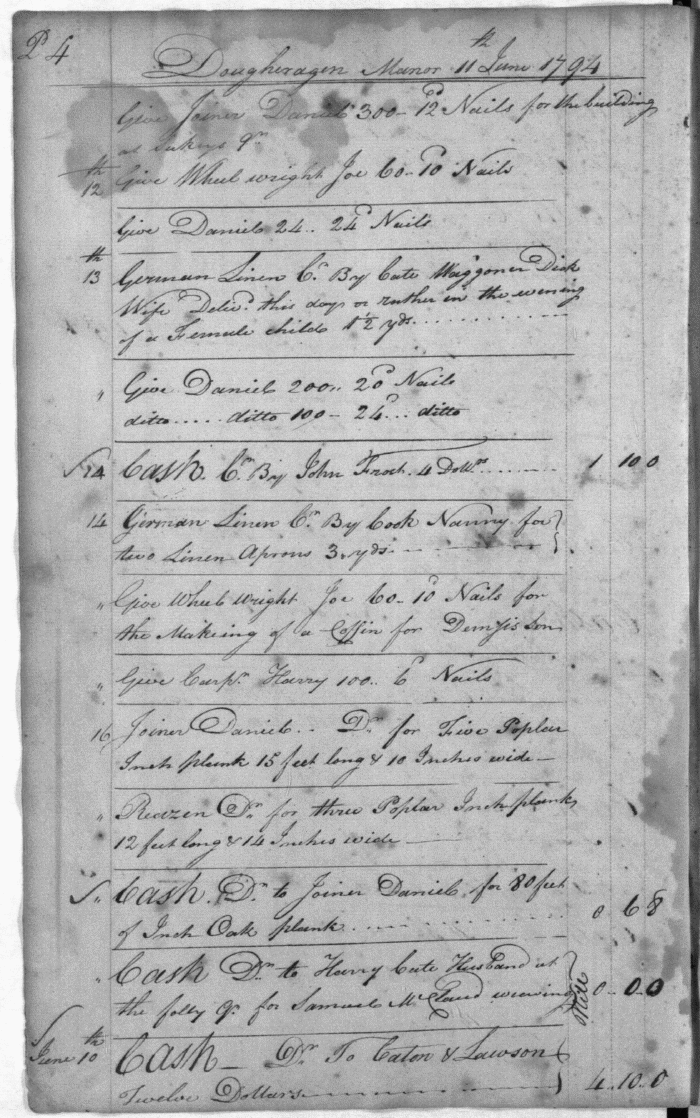 P 4
Dougheragen Manor 11th June 1794
Give Joiner Daniel 300 - 12d Nails for the building
at Sukeys Qr
12th Give Wheel wright Joe 60 - 10d Nails
Give Daniel 24 .. 24d Nails
13th German Linen Cr. By Cate Waggoner Dick
Wife Delivd. this day or rather in the evening
of a Female childe 1 1/2 yds ..........
" Give Daniel 200 .. 20d Nails
ditto ..... ditto 100 - 24d ... ditto
14 Cash. Cr. By John Frost. 4 Dollrs ....... 1 10 0
14 German Linen Cr. By Cook Nanny for
two Linen Aprons 3 yds
" Give Wheel wright Joe 60 - 10d Nails for
the Makeing of a Coffin for Son
" Give Carpr. Harry 100 .. 6d Nails
16 Joiner Daniel .. Dr. for Five Poplar
Inch plank 15 feet long & 10 Inches wide -
" Dr. for three Poplar Inch plank
12 feet long & 14 Inches wide
" Cash. Dr. to Joiner Daniel, for 80 feet
of Inch Oak plank ........ 0 6 8
" Cash Dr. to Harry Cate Husband at
the folly Qr. for Samuel weaveing 0 .. 0 .. 0
June 10th Cash - Dr. To Caton & Lawson
Twelve Dollars 4 .. 10 .. 0